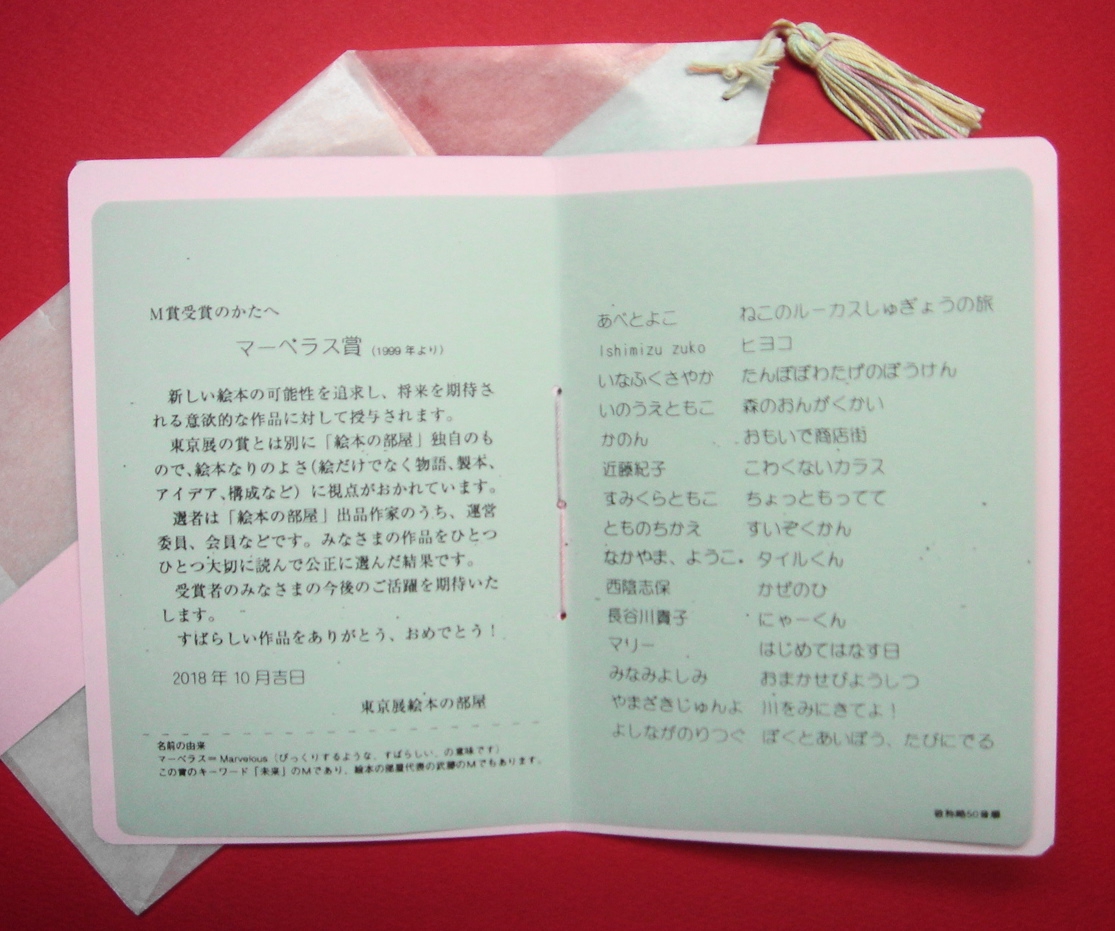 M賞受賞のかたへ
マーベラス賞 (1999 年より)
新しい絵本の可能性を追求し、将来を期待さ
れる意欲的な作品に対して授与されます。
東京展の賞とは別に「絵本の部屋」独自のも
ので、絵本なりのよさ(絵だけでなく物語、製本、
アイデア、構成など)に視点がおかれています。
選者は「絵本の部屋」出品作家のうち、運営
委員、会員などです。みなさまの作品をひとつ
ひとつ大切に読んで公正に選んだ結果です。
受賞者のみなさまの今後のご活躍を期待いた
します。
すばらしい作品をありがとう、おめでとう!
2018 年 10 月吉日
東京展絵本の部屋
名前の由来
マーベラス= Marvelous(びっくりするような、すばらしい、の意味です)
この賞のキーワード「未来」のMであり、絵本の部屋代表の武藤のMでもあります。
あべとよこ ねこのルーカスしゅぎょうの旅
Ishimizu zuko ヒヨコ
いなふくさやか たんぽぽわたげのぼうけん
いのうえともこ 森のおんがくかい
かのん おもいで商店街
近藤紀子 こわくないカラス
すみくらともこ ちょっともってて
とものちかえ すいぞくかん
なかやま、ようこ。 タイルくん
西陰志保 かぜのひ
長谷川貴子 にゃーくん
マリー はじめてはなす日
みなみよしみ おまかせびようしつ
やまざきじゅんよ 川をみにきてよ!
よしながのりつぐ ぼくとあいぼう、たびにでる
敬称略50音順